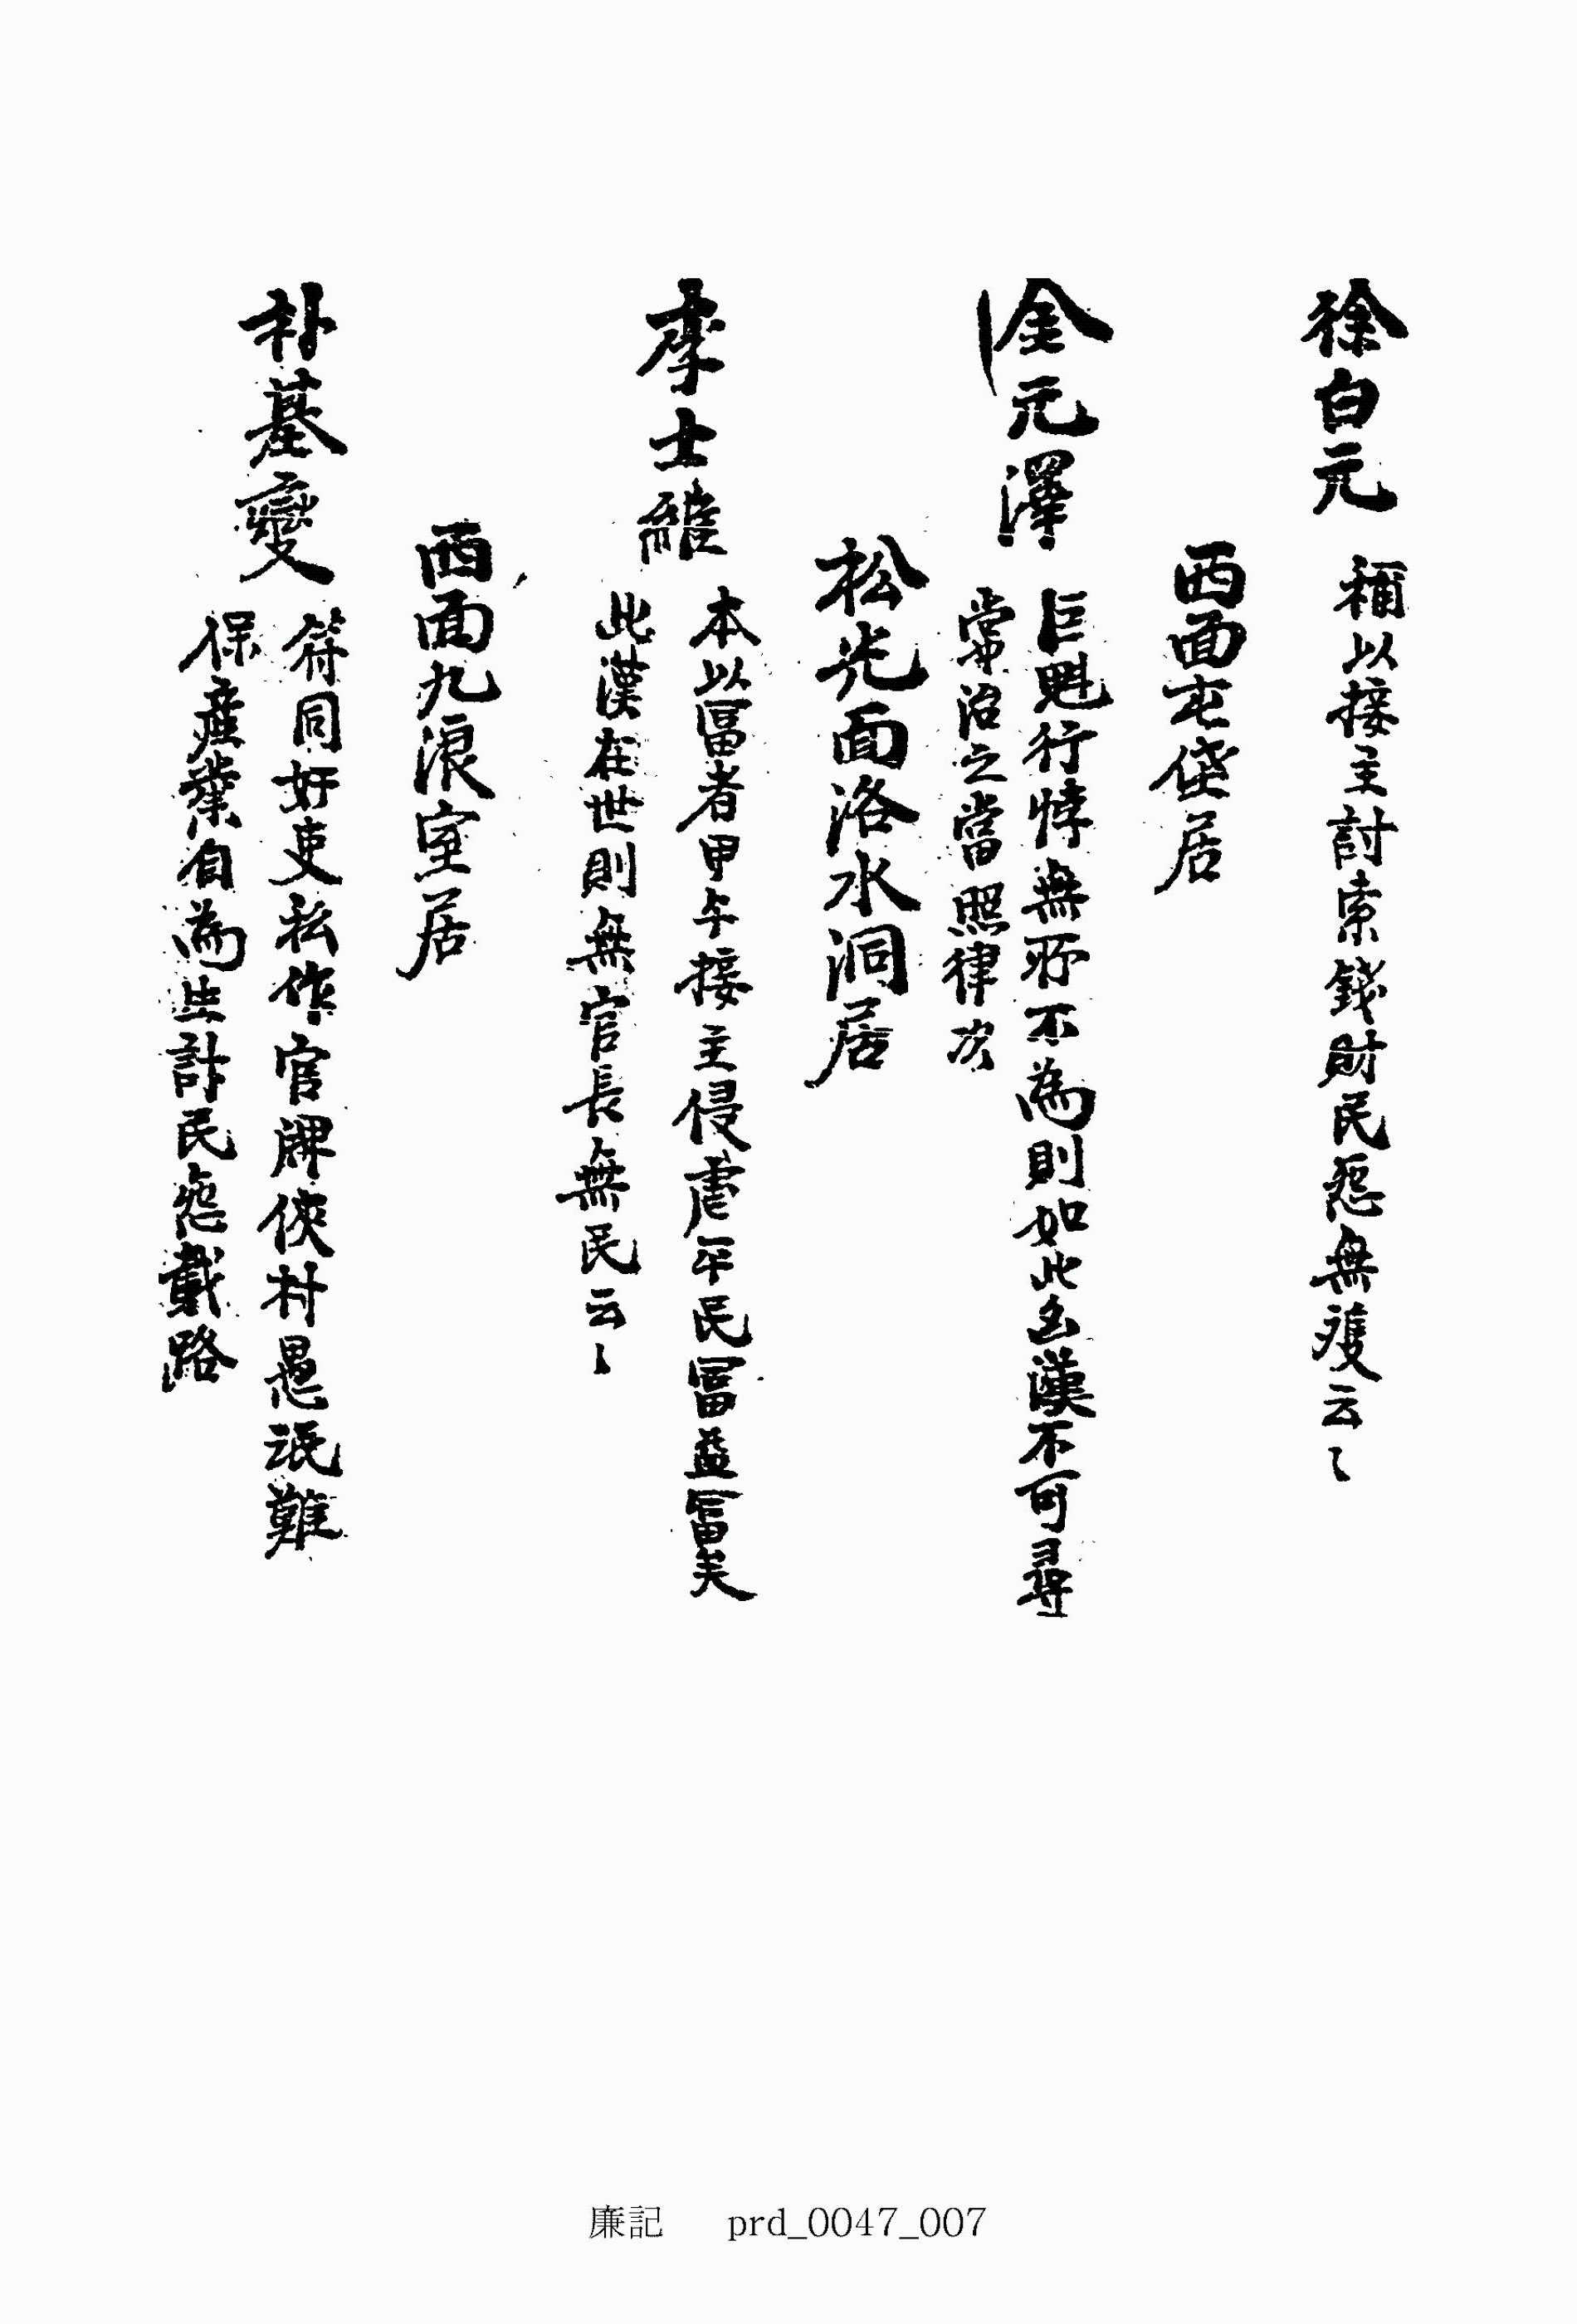 徐白元
稱以接主討索錢財民怨無雙云〻
西面屯垈居
金元澤
巨魁行悖無所不為則如此幺漢不可尋
常治之當照律次
松光面洛水洞居
李士維
本以富者甲午接主侵虐平民富益富矣
此漢在世則無官長無民云〻
西面九浪室居
朴基燮
符同奸吏私作官牌俠村愚氓難
保産業自為生計民怨載路
廉記 prd_0047_007